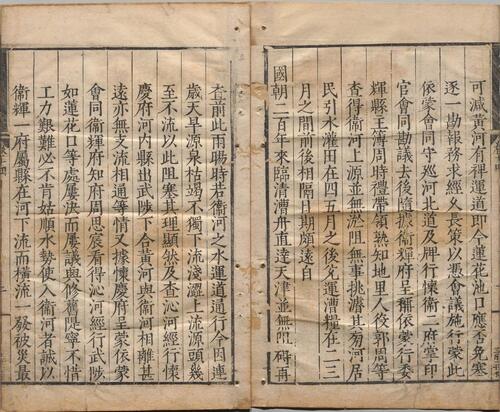 可減黃河有裨運道即今蓮花池口應否免塞
逐一勘報務求經久長策以憑會議施行蒙此
依蒙會同守巡河北道及牌行懷衞二府掌印
官會同勘議去後隨據衞輝府呈稱依蒙行委
輝縣王簿周時禮帶領熟知地里人役郭周等
查得衞河上源並無淤阻無事挑濬其旁河居
民引水灌田在四五月之後兌運漕糧在二三
月之間前後相隔日期頗遠自
國朝二百年來臨清漕舟直達天津並無阻礙再
查前此雨暘時若衞河之水運道通行今因連
歲天旱源泉枯竭不獨下流淺澀上流源頭幾
至不流以此阻塞其理顯然及查沁河經行懷
慶府河內縣出武陟下合黃河與衞河相離甚
遠亦無支流相通等情又據懷慶府呈蒙依蒙
會同衞輝府知府周思宸看得沁河經行武陟
如蓮花口等處屢決而屢議與修舊隄寧不惜
工力艱難必不肯姑順水勢使入衞河者誠以
衞輝一府屬縣在河下流而橫流 發被災最